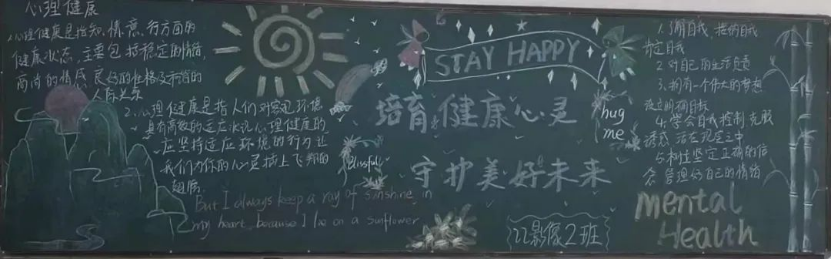 心理健康
1.心理健康是指知、情、意、行方面的
健康状态，主要包括稳定的情绪，
高尚的情感，良好的性格及和谐的
人际关系
2.心理健康是指人们对客观环境
具有高效的适应状况心理健康的
应坚持适应环境的行为让
我们为你的心灵插上飞翔的
翅膀.
But I always keep a ray of sunshine in
my heart, because I live on a sunflower
STAY HAPPY
培育健康心灵
守护美好未来
blissful
hug
me
22影像2班
1.了解自我、接纳自我
肯定自我
2.对自己的生活负责
3.拥有一个伟大的梦想
设立明确目标
4.学会自我控制克服
诱惑 活在现实之中
5.秉性坚定正确的信
念 管理好自己的情绪
Mental
Health